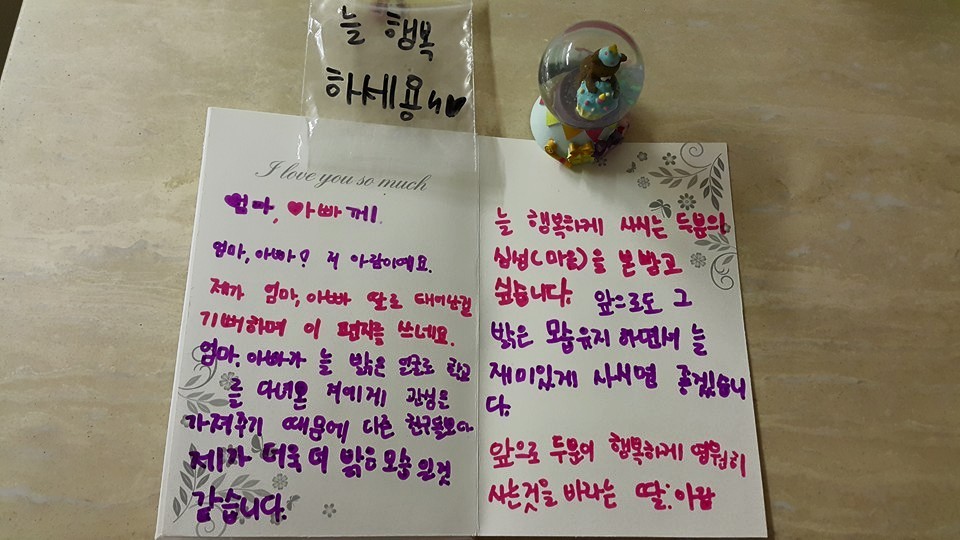 늘 행복
하세용
I love you so much
엄마, 아빠께.
엄마, 아빠! 저 아람이예요.
제가 엄마, 아빠 딸로 태어난걸
기뻐하며 이 편지를 쓰네요.
엄마. 아빠가 늘 밝은 얼굴로 학교
를 다녀온 저에게 관심은
가져주기 때문에 다른 친구들보다
제가 더욱 더 밝은 모습 인것
같습니다.
늘 행복하게 사시는 두분의
심성(마음)을 본받고
싶습니다. 앞으로도 그
밝은 모습유지 하면서 늘
재미있게 사시면 좋겠습니
다.
앞으로 두분이 행복하게 영원히
사는것을 바라는 딸: 아람